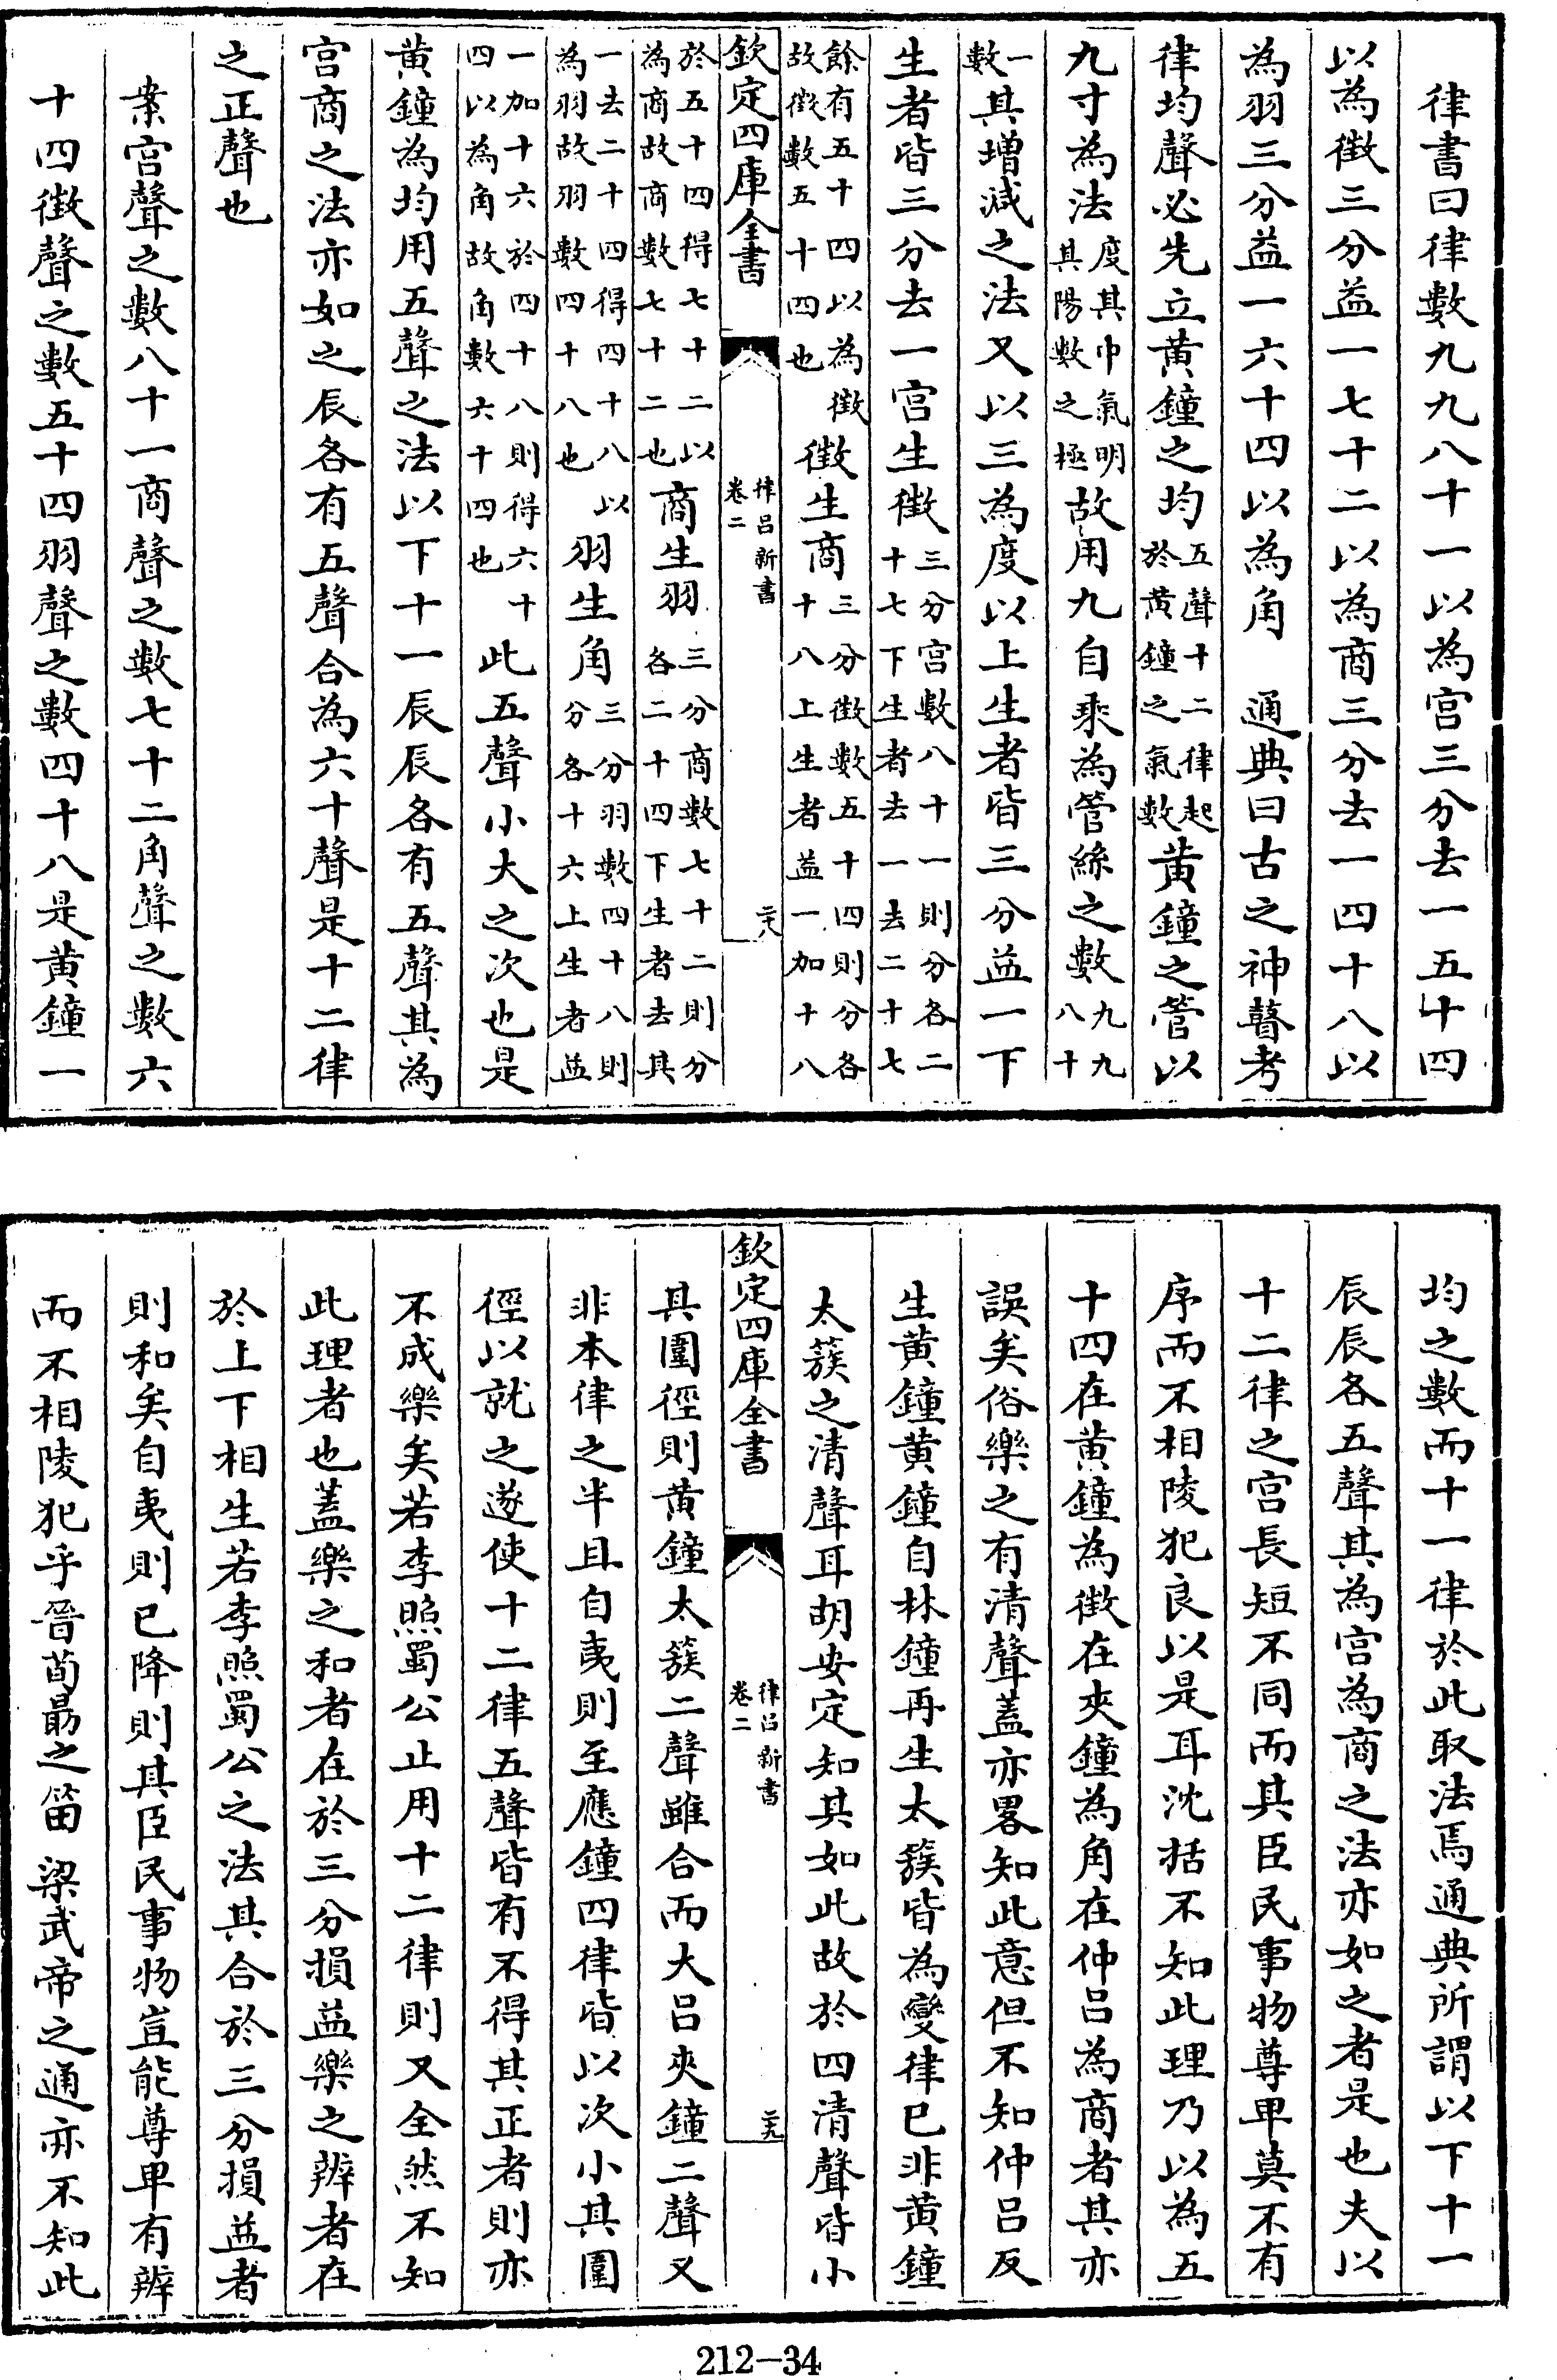 律書曰律數九九八十一以為宫三分去一五十四
以為徵三分益一七十二以為商三分去一四十八以
為羽三分益一六十四以為角　通典曰古之神瞽考
律均聲必先立黄鐘之均五聲十二律起於黄鐘之氣數黄鐘之管以
九寸為法度其中氣明其陽數之極故用九自乘為管絲之數九九八十
一數其增減之法又以三為度以上生者皆三分益一下
生者皆三分去一宫生徵三分宫數八十一則分各二十七下生者去一去二十七
餘有五十四以為徵故徵數五十四也徵生商三分徵數五十四則分各十八上生者益一加十八
欽定四庫全書
律吕新書
卷二
二十八
於五十四得七十二以為商故商數七十二也商生羽三分商數七十二則分各二十四下生者去其
一去二十四得四十八以為羽故羽數四十八也羽生角三分羽數四十八則分各十六上生者益
一加十六於四十八則得六十四以為角故角數六十四也此五聲小大之次也是
黄鐘為均用五聲之法以下十一辰辰各有五聲其為
宫商之法亦如之辰各有五聲合為六十聲是十二律
之正聲也
案宫聲之數八十一商聲之數七十二角聲之數六
十四徵聲之數五十四羽聲之數四十八是黄鐘一
均之數而十一律於此取法焉通典所謂以下十一
辰辰各五聲其為宫為商之法亦如之者是也夫以
十二律之宫長短不同而其臣民事物尊卑莫不有
序而不相陵犯良以是耳沈括不知此理乃以為五
十四在黄鐘為徵在夾鐘為角在仲吕為商者其亦
誤矣俗樂之有清聲蓋亦畧知此意但不知仲吕反
生黄鐘黄鐘自林鐘再生太簇皆為變律已非黄鐘
太簇之清聲耳胡安定知其如此故於四清聲皆小
欽定四庫全書
律吕新書
卷二
二十九
其圍徑則黄鐘太簇二聲雖合而大吕夾鐘二聲又
非本律之半且自夷則至應鐘四律皆以次小其圍
徑以就之遂使十二律五聲皆有不得其正者則亦
不成樂矣若李照蜀公止用十二律則又全然不知
此理者也蓋樂之和者在於三分損益樂之辨者在
於上下相生若李照蜀公之法其合於三分損益者
則和矣自夷則已降則其臣民事物豈能尊卑有辨
而不相陵犯乎晉荀勗之笛梁武帝之通亦不知此
212-34